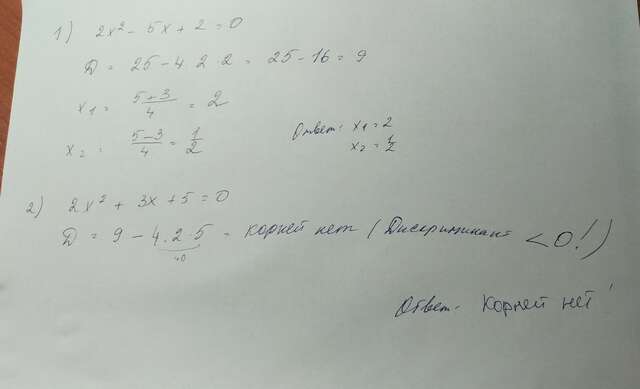 1) 2x² - 5x + 2 = 0
D = 25 - 4 · 2 · 2 = 25 - 16 = 9
x₁ = (5+3)/4 = 2
x₂ = (5-3)/4 = 1/2
Ответ: x₁ = 2
x₂ = 1/2
2) 2x² + 3x + 5 = 0
D = 9 - 4 · 2 · 5 = корней нет (Дискриминант < 0!)
40
Ответ. Корней нет!